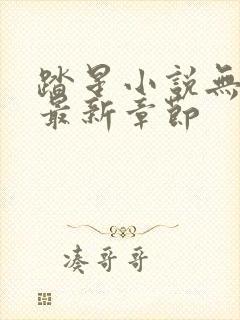 踏星小説無
最新章節
凑哥哥